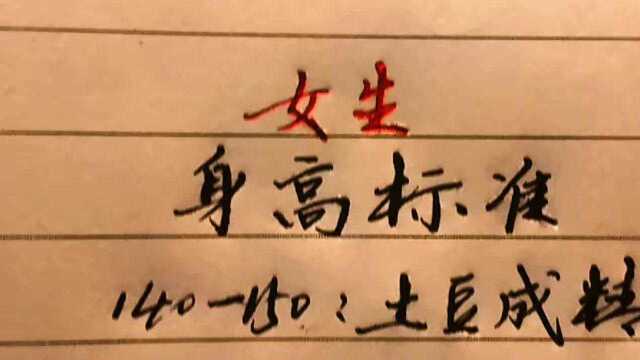 女生
身高标准
140-150:土豆成精